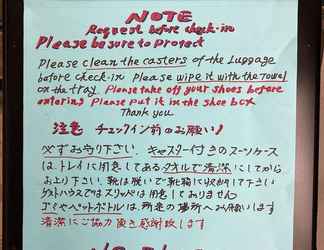 NOTE
Request before check-in
Please be sure to protect
Please clean the casters of the Luggage
before check-in Please wipe it with the Towel
on the tray. Please take off your shoes before
entering Please put it in the shoe box
Thank you
注意 チェックイン前のお願い!
必ずお守り下さい. キャスター付きのスーツケース
は、トレイに用意してあるタオルで清潔にしてから
お上り下さい. 靴は脱いで靴箱に収納して下さい
ゲストハウスではスリッパは用意しておりません
ペットボトルは、所定の場所へお願いします
清潔にご協力頂き感謝致します